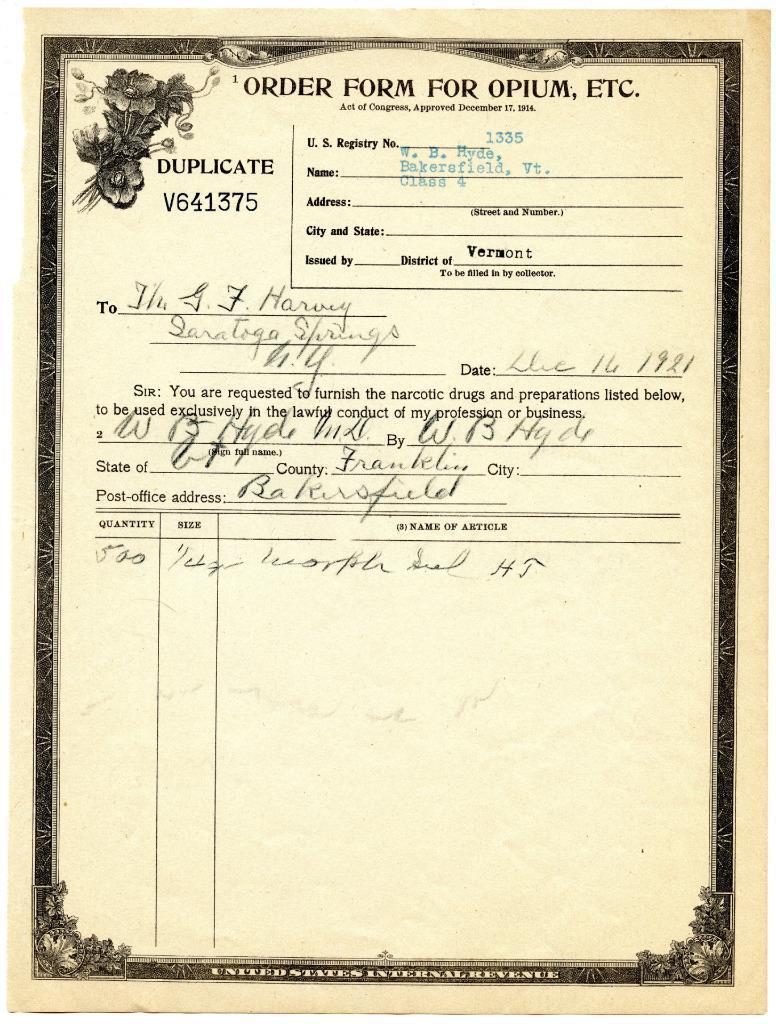 1 ORDER FORM FOR OPIUM, ETC.
Act of Congress, Approved December 17, 1914.
DUPLICATE
V641375
U. S. Registry No. 1335
Name: W. B. Hyde,
Bakersfield, Vt.
Class 4
Address:
(Street and Number.)
City and State:
Issued by District of Vermont
To be filled in by collector.
To The G. F. Harvey
Saratoga Springs
N.Y.
Date: Dec 16 1921
SIR: You are requested to furnish the narcotic drugs and preparations listed below,
to be used exclusively in the lawful conduct of my profession or business.
2 W B Hyde M.D. By W. B Hyde
(Sign full name.)
State of Vt County: Franklin City:
Post-office address: Bakersfield
QUANTITY SIZE (3) NAME OF ARTICLE
500 Morph Sul HT
UNITED STATES INTERNAL REVENUE